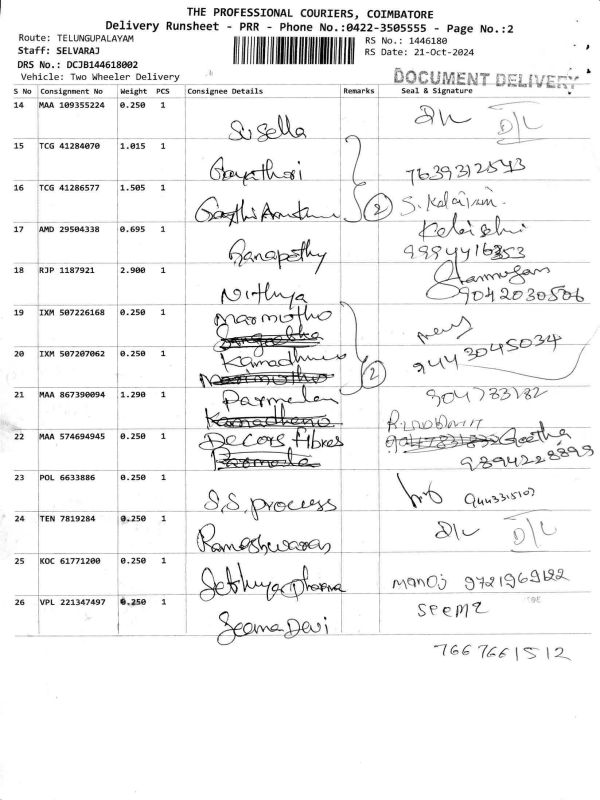 THE PROFESSIONAL COURIERS, COIMBATORE
Delivery Runsheet - PRR - Phone No.:0422-3505555 - Page No.:2
Route: TELUNGUPALAYAM
RS No.: 1446180
Staff: SELVARAJ
RS Date: 21-Oct-2024
DRS No.: DCJB144618002
Vehicle: Two Wheeler Delivery
DOCUMENT DELIVERY
S No Consignment No Weight PCS Consignee Details Remarks Seal & Signature
14 MAA 109355224 0.250 1
D/L D/L
Susella
15 TCG 41284070 1.015 1
Gayathori 7639312543
16 TCG 41286577 1.505 1
2 S.
17 AMD 29504338 0.695 1
Ganapathy 9994416353
18 RJP 1187921 2.900 1
Nithya 9042030506
19 IXM 507226168 0.250 1
Marmutho
9443045034
20 IXM 507207062 0.250 1
2
21 MAA 867390094 1.290 1
904733182
22 MAA 574694945 0.250 1
Decors fibres Geetha
9894228899
23 POL 6633886 0.250 1
S.S. process
24 TEN 7819284 0.250 1
D/L D/L
Rameshwaran
25 KOC 61771200 0.250 1
Manoj 9721969122
26 VPL 221347497 0.250 1
Seema Devi
7667661512